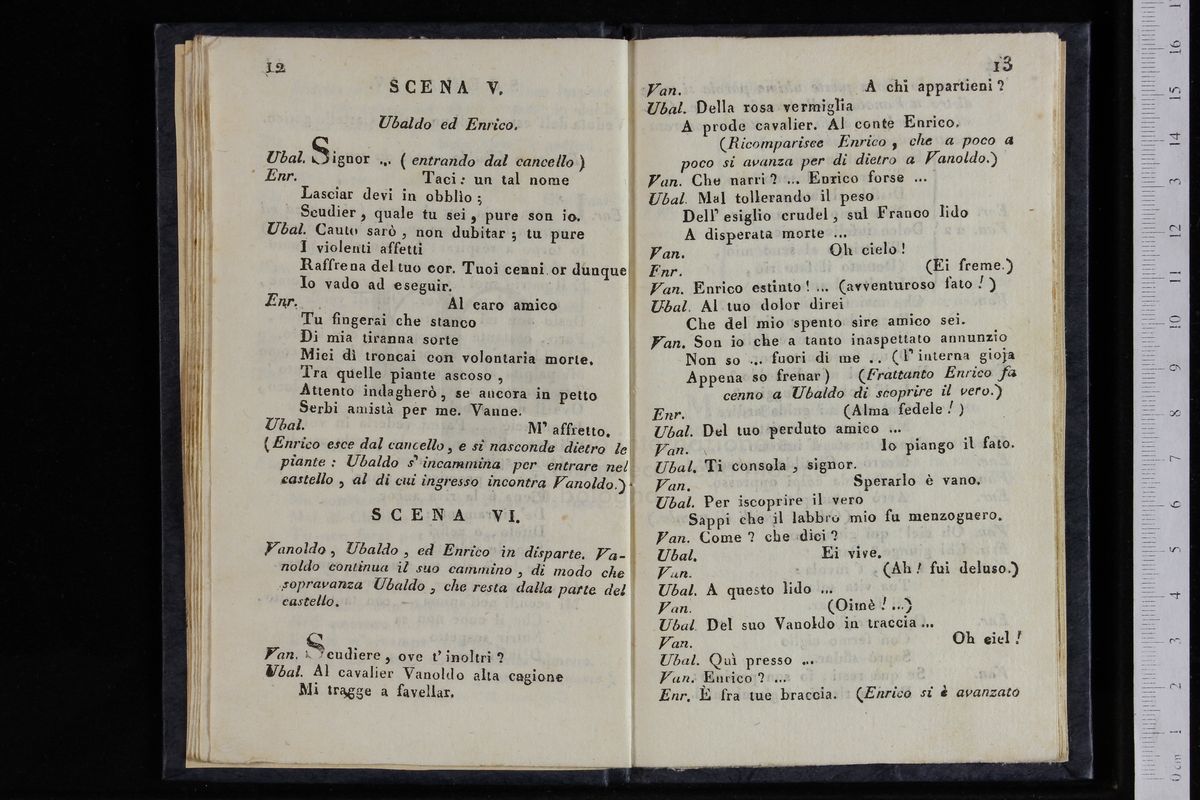 12
SCENA V.
Ubaldo ed Enrico.
Ubal. Signor ... ( entrando dal cancello )
Enr. Taci: un tal nome
Lasciar devi in obblio ;
Scudier , quale tu sei , pure son io.
Ubal. Cauto sarò , non dubitar ; tu pure
I violenti affetti
Raffrena del tuo cor. Tuoi cenni or dunque
Io vado ad eseguir.
Enr. Al caro amico
Tu fingerai che stanco
Di mia tiranna sorte
Miei dì troncai con volontaria morte.
Tra quelle piante ascoso ,
Attento indagherò , se ancora in petto
Serbi amistà per me. Vanne.
Ubal. M' affretto.
(Enrico esce dal cancello , e si nasconde dietro le
piante : Ubaldo s' incammina per entrare nel
castello , al di cui ingresso incontra Vanoldo.)
SCENA VI.
Vanoldo , Ubaldo , ed Enrico in disparte. Va-
noldo continua il suo cammino , di modo che
sopravanza Ubaldo , che resta dalla parte del
castello.
Van. Scudiere , ove t' inoltri ?
Ubal. Al cavalier Vanoldo alta cagione
Mi tragge a favellar.
13
Van. A chi appartieni ?
Ubal. Della rosa vermiglia
A prode cavalier. Al conte Enrico.
(Ricomparisce Enrico , che a poco a
poco si avanza per di dietro a Vanoldo.)
Van. Che narri ? ... Enrico forse ...
Ubal. Mal tollerando il peso
Dell' esiglio crudel , sul Franco lido
A disperata morte ...
Van. Oh cielo !
Enr. (Ei freme.)
Van. Enrico estinto ! ... (avventuroso fato ! )
Ubal. Al tuo dolor direi
Che del mio spento sire amico sei.
Van. Son io che a tanto inaspettato annunzio
Non so ... fuori di me .. ( l' interna gioja
Appena so frenar ) (Frattanto Enrico fa
cenno a Ubaldo di scoprire il vero.)
Enr. (Alma fedele ! )
Ubal. Del tuo perduto amico ...
Van. Io piango il fato.
Ubal. Ti consola , signor.
Van. Sperarlo è vano.
Ubal. Per iscoprire il vero
Sappi che il labbro mio fu menzognero.
Van. Come ? che dici ?
Ubal. Ei vive.
Van. (Ah ! fui deluso.)
Ubal. A questo lido ...
Van. (Oimè ! ...)
Ubal. Del suo Vanoldo in traccia ...
Van. Oh ciel !
Ubal. Quì presso ...
Van. Enrico ? ...
Enr. È fra tue braccia. (Enrico si è avanzato
0 cm 1 2 3 4 5 6 7 8 9 10 11 12 13 14 15 16